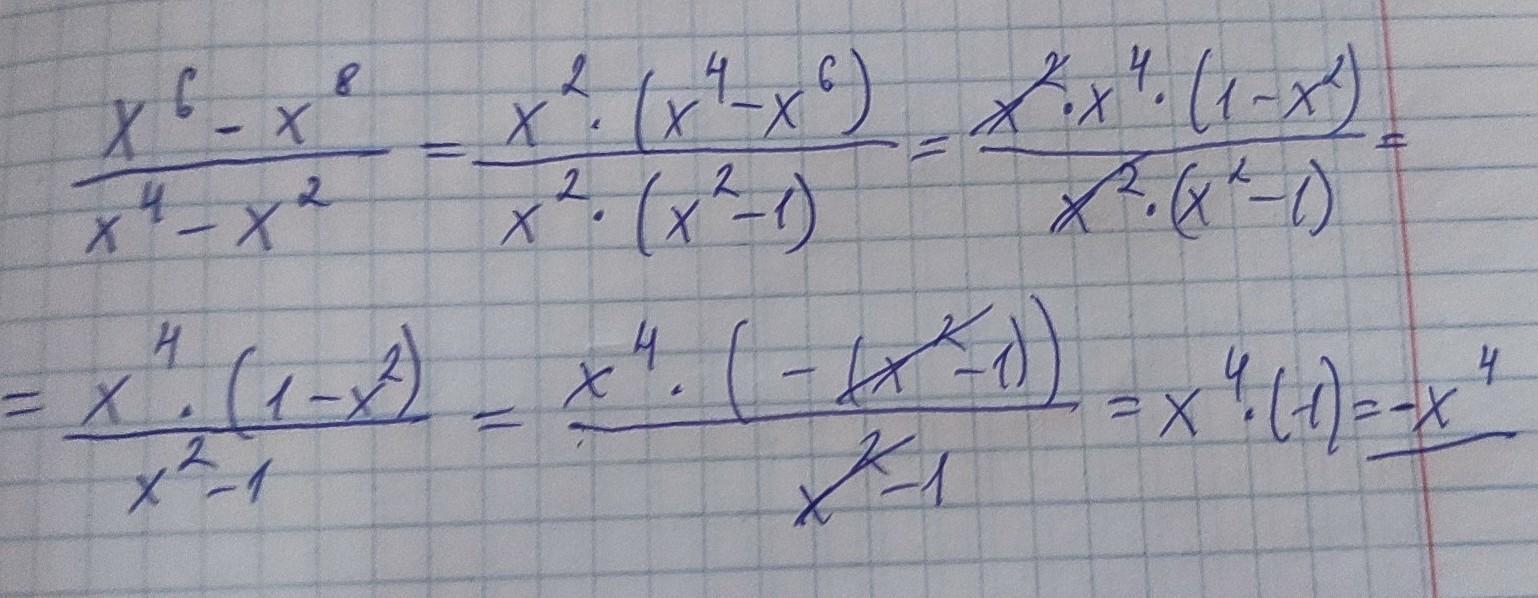 (x⁶ - x⁸)/(x⁴ - x²) = (x² · (x⁴ - x⁶))/(x² · (x² - 1)) = (x² · x⁴ · (1 - x²))/(x² · (x² - 1)) =
= (x⁴ · (1 - x²))/(x² - 1) = (x⁴ · (-(x² - 1)))/(x² - 1) = x⁴ · (-1) = -x⁴